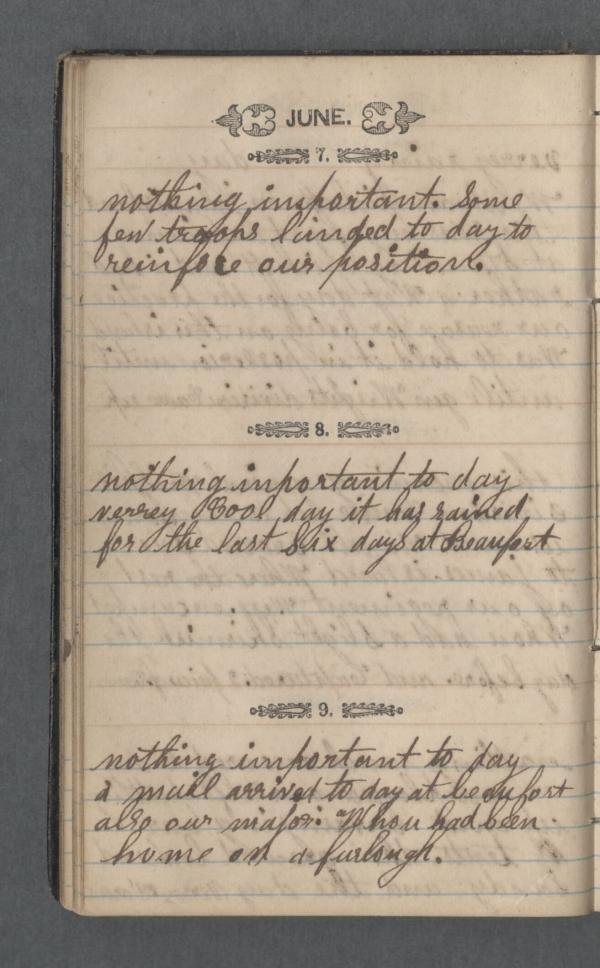 JUNE.
7.
nothing important. Some
few troops landed to day to
reinforce our position.
8.
nothing inportant to day
verrey Cool day it has rained
for the last Six days at Beaufort
9.
nothing important to day
a mail arrived to day at beaufort
also our major. Whou had been
home on a furlough.